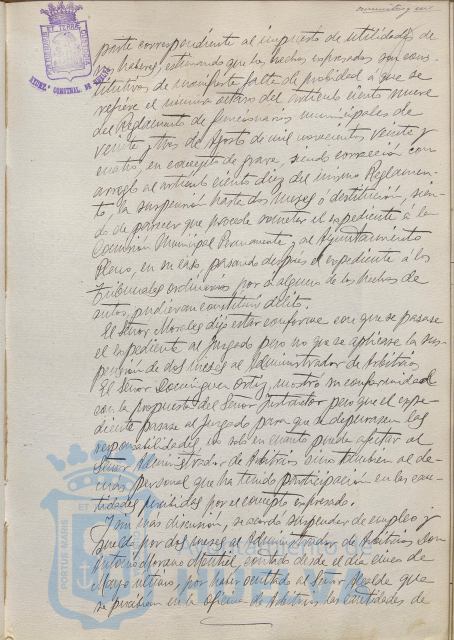 noventa y un
PORTUS MARIS ET TERRE CUSTODIA
AYUNT.º CONSTNAL. DE HUELVA
parte correspondiente al impuesto de utilidades de
los haberes, estimando que los hechos expresados son cons-
titutivos de manifiesta falta de probidad a que se
refiere el número octavo del artículo ciento nueve
del Reglamento de funcionarios municipales de
veinte y tres de Agosto de mil novecientos veinte y
cuatro, en concepto de grave, siendo corrección con
arreglo al artículo ciento diez del mismo Reglamen-
to, la suspensión hasta dos meses ó destitución, sien-
do de parecer que procede someter el expediente a la
Comisión Municipal Permanente y al Ayuntamiento
Pleno, en su caso, pasando después el expediente á los
Tribunales ordinarios por si alguno de los hechos de
autos, pudieran constituir delito.
El Señor Morales dijo estar conforme con que se pasase
el expediente al Juzgado pero no que se aplicase la sus-
pensión de dos meses al Administrador de Arbitrios.
El Señor Domínguez Ortiz, mostró su conformidad
con la propuesta del Señor Instructor pero que el expe-
diente pasase al Juzgado para que se depurasen las
responsabilidades no solo en cuanto pueda afectar al
Señor Administrador de Arbitrios sino también al de-
más personal que ha tenido participación en las can-
tidades percibidas por el concepto expresado.
Y sin más discusión, se acordó suspender de empleo y
sueldo por dos meses al Administrador de Arbitrios Don
Antonio Moreno Montiel, contado desde el día cinco de
Mayo último, por haber ocultado al Señor Alcalde que
se percibían en la oficina de Arbitrios las cantidades de
PORTUS MARIS
Ayuntamiento de
HUELVA